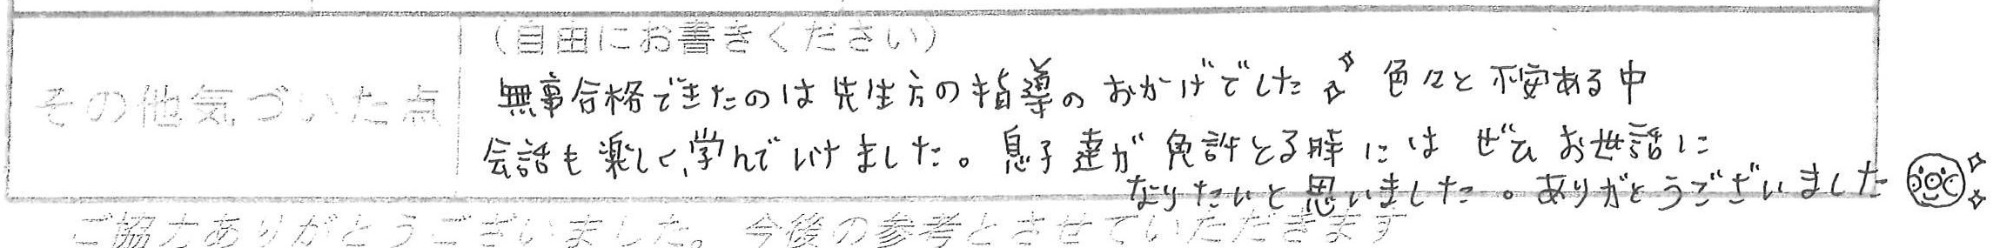 (自由にお書きください)
その他気づいた点
無事合格できたのは先生方の指導のおかげでした 色々と不安ある中
会話も楽しく、学んでいけました。息子達が免許とる時には ぜひお世話に
なりたいと思いました。ありがとうございました
ご協力ありがとうございました。今後の参考とさせていただきます